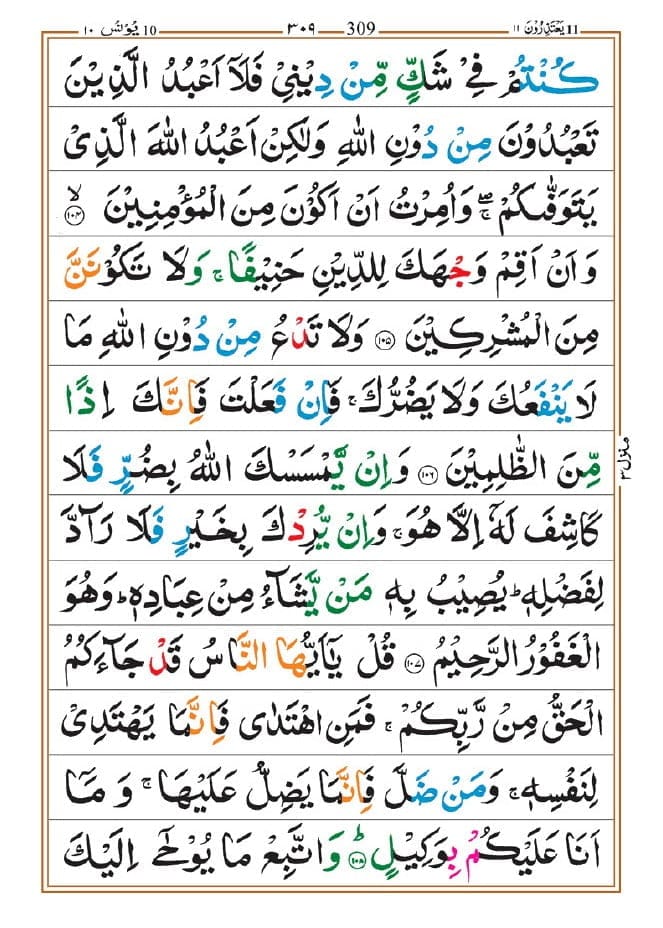 یَعْتَذِرُوْنَ 11 ١١ 309 ٣٠٩ یُوْنُس 10 ١٠
كُنْتُمْ فِیْ شَكٍّ مِّنْ دِیْنِیْ فَلَاۤ اَعْبُدُ الَّذِیْنَ
تَعْبُدُوْنَ مِنْ دُوْنِ اللهِ وَلٰكِنْ اَعْبُدُ اللهَ الَّذِیْ
یَتَوَفّٰىكُمْ ۖۚ وَاُمِرْتُ اَنْ اَكُوْنَ مِنَ الْمُؤْمِنِیْنَ ۙ﴿١٠٤﴾
وَاَنْ اَقِمْ وَجْهَكَ لِلدِّیْنِ حَنِیْفًا ۚ وَلَا تَكُوْنَنَّ
مِنَ الْمُشْرِكِیْنَ ﴿١٠٥﴾ وَلَا تَدْعُ مِنْ دُوْنِ اللهِ مَا
لَا یَنْفَعُكَ وَلَا یَضُرُّكَ ۚ فَاِنْ فَعَلْتَ فَاِنَّكَ اِذًا
مِّنَ الظّٰلِمِیْنَ ﴿١٠٦﴾ وَاِنْ یَّمْسَسْكَ اللهُ بِضُرٍّ فَلَا
كَاشِفَ لَهٗۤ اِلَّا هُوَ ۚ وَاِنْ یُّرِدْكَ بِخَیْرٍ فَلَا رَآدَّ
لِفَضْلِهٖ ؕ یُصِیْبُ بِهٖ مَنْ یَّشَآءُ مِنْ عِبَادِهٖ ؕ وَهُوَ
الْغَفُوْرُ الرَّحِیْمُ ﴿١٠٧﴾ قُلْ یٰۤاَیُّهَا النَّاسُ قَدْ جَآءَكُمُ
الْحَقُّ مِنْ رَّبِّكُمْ ۚ فَمَنِ اهْتَدٰى فَاِنَّمَا یَهْتَدِیْ
لِنَفْسِهٖ ۚ وَمَنْ ضَلَّ فَاِنَّمَا یَضِلُّ عَلَیْهَا ۚ وَمَاۤ
اَنَا عَلَیْكُمْ بِوَكِیْلٍ ؕ﴿١٠٨﴾ وَاتَّبِعْ مَا یُوْحٰۤى اِلَیْكَ
منزل ٣